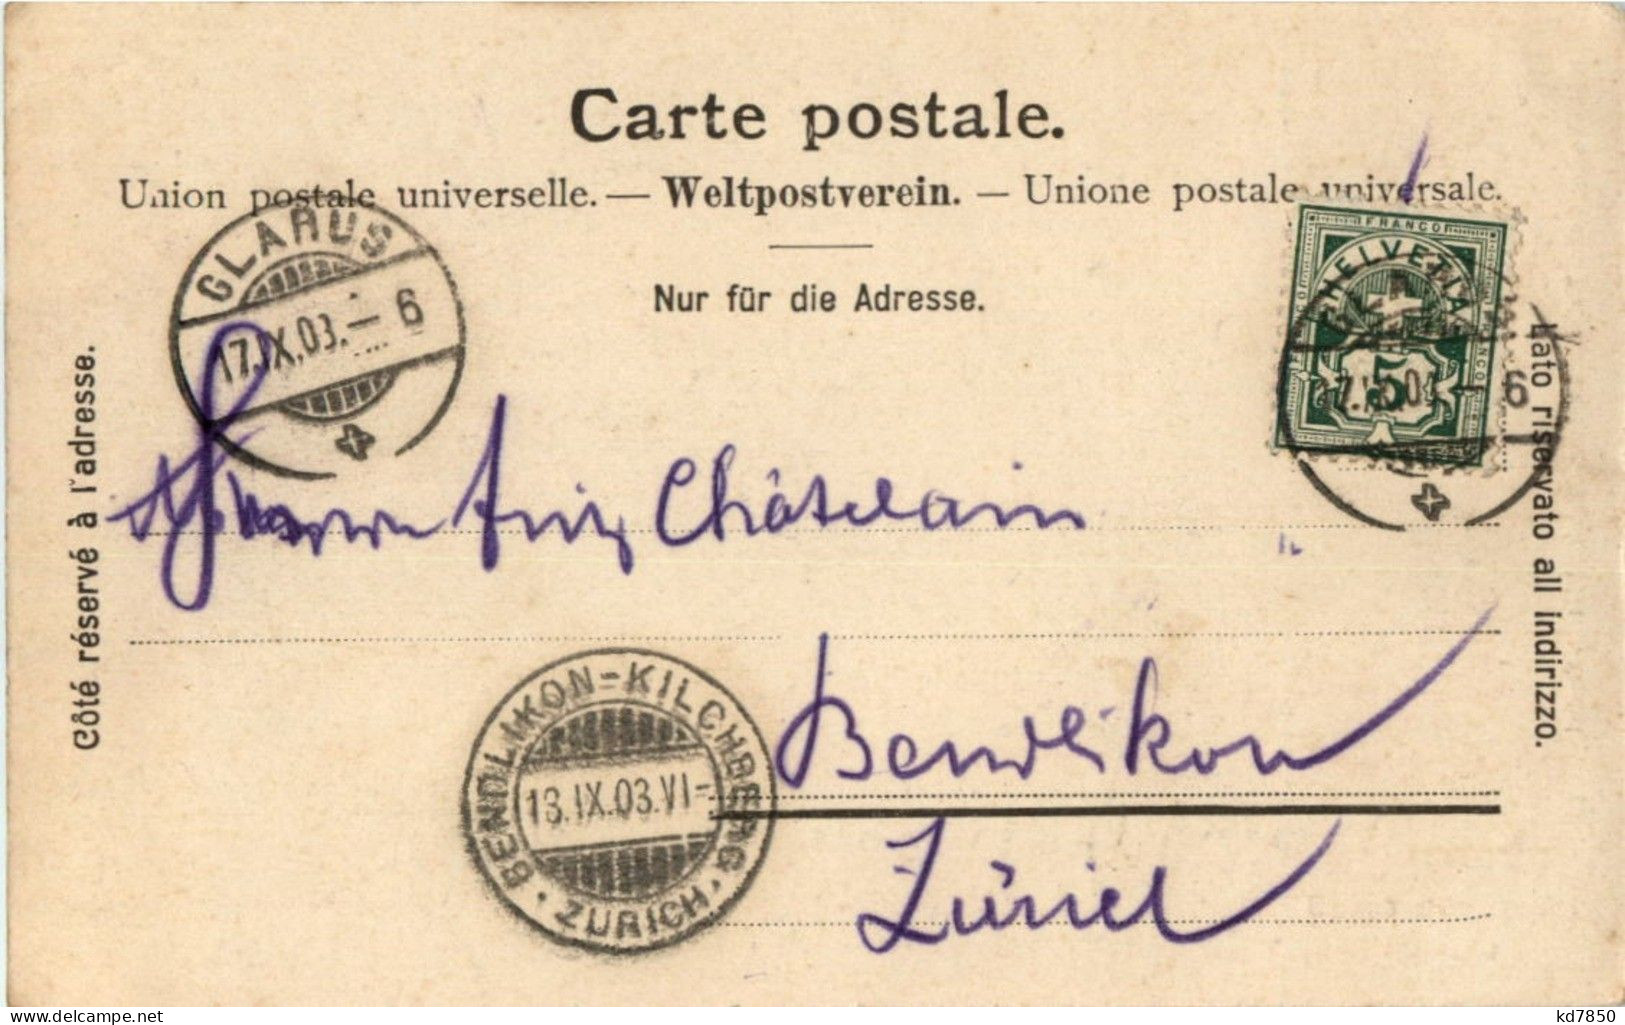 Carte postale.
Union postale universelle. — Weltpostverein. — Unione postale universale.
Nur für die Adresse.
Côté réservé à l'adresse.
Lato riservato all indirizzo.
GLARUS
17.IX.03.— 6
FRANCO
HELVETIA
FRANCO
5
17.IX.03 6
Fritz Châtelain
Bendlikon
Zürich
BENDLIKON-KILCHBERG
18.IX.03.VI-
· ZÜRICH ·
delcampe.net
kd7850